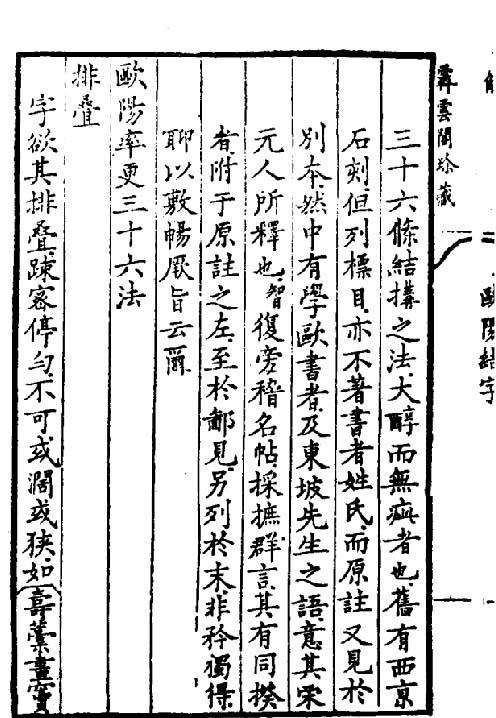 歐陽結字
霽雲閣珍藏
三十六條結搆之法大醇而無疵者也舊有西京
石刻但列標目亦不著書者姓氏而原註又見於
別本然中有學歐書者及東坡先生之語意其宋
元人所釋也智復旁稽名帖採摭群言其有同揆
者附于原註之左至於鄙見另列於末非矜獨得
聊以敷暢厥旨云爾
歐陽率更三十六法
排疊
字欲其排疊踈密停勻不可或濶或狹如壽藁畫